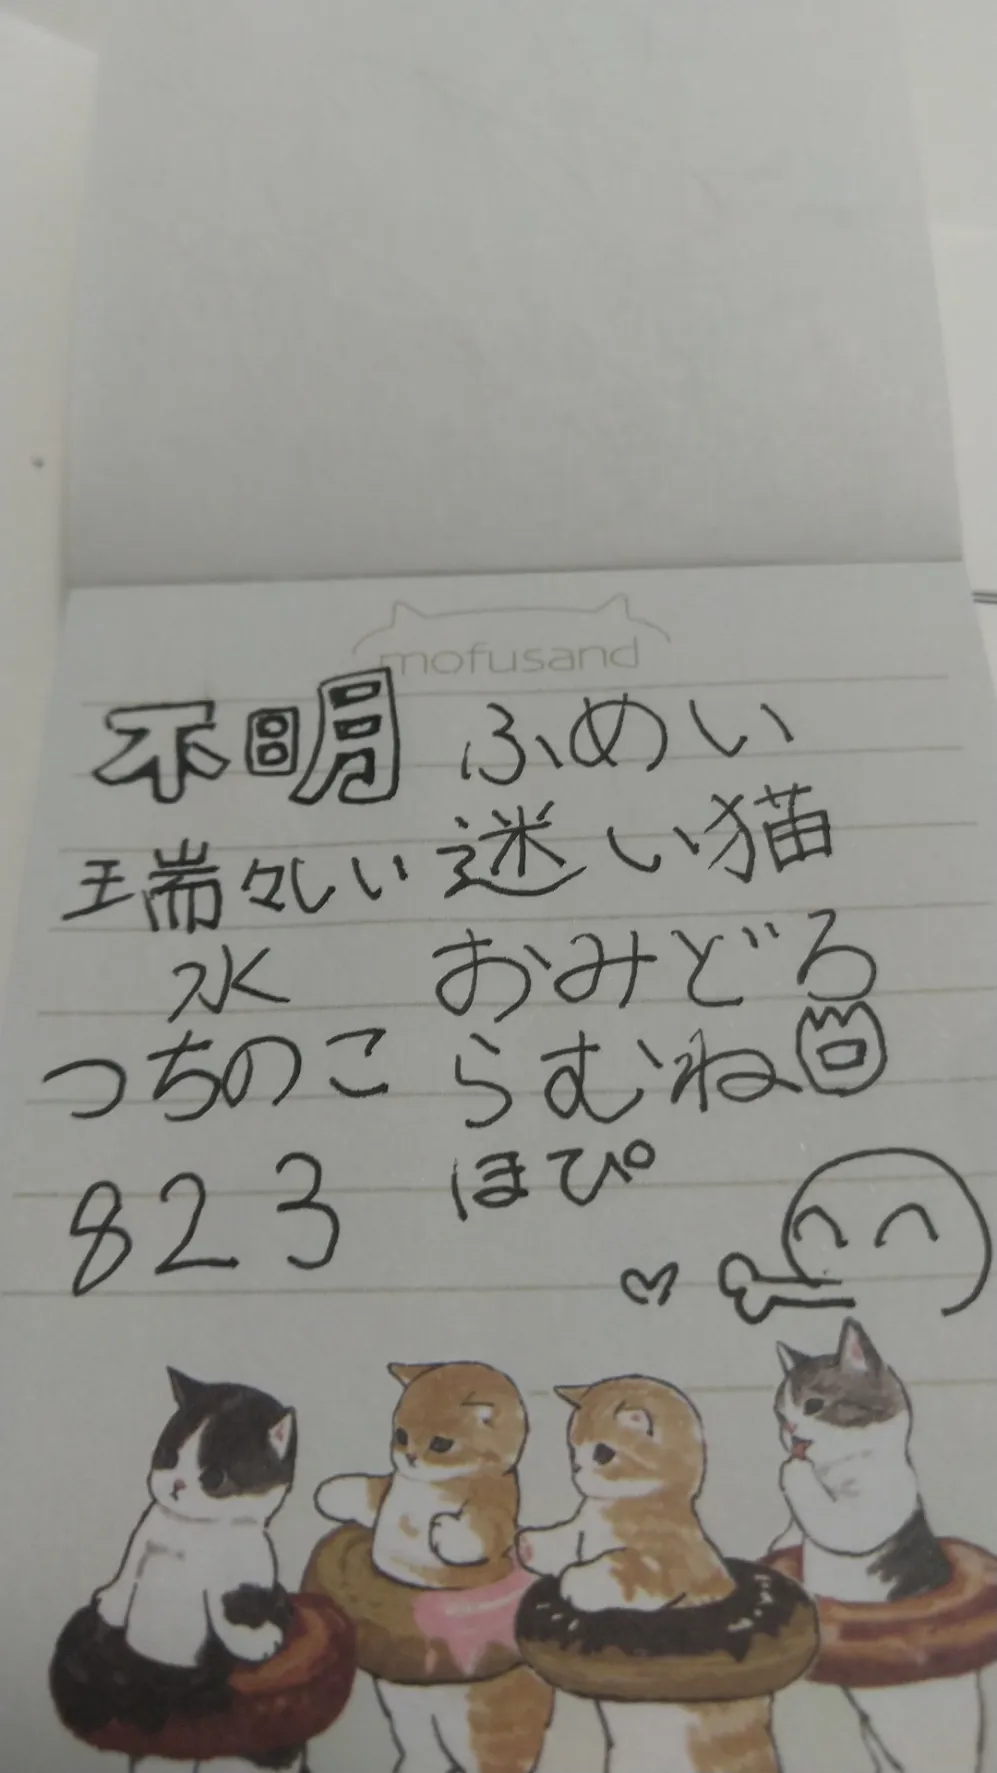 mofusand
不明 ふめい
瑞々しい 迷い猫
水 おみどろ
つちのこ らむね
823 ほぴ